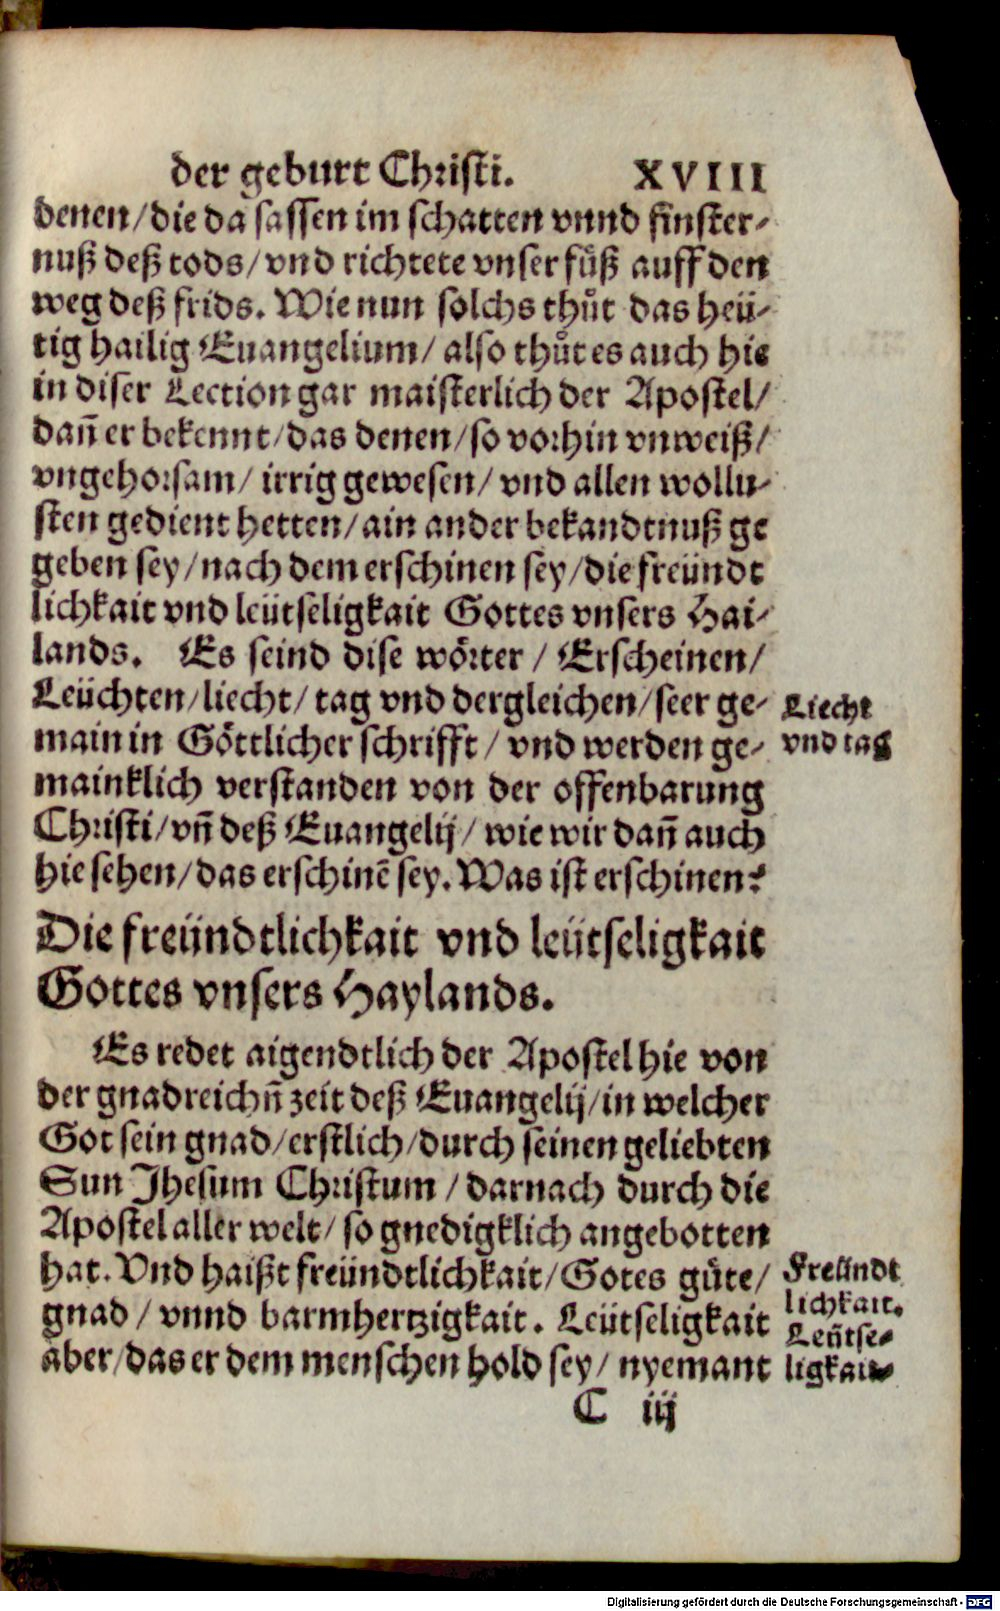 der geburt Christi. XVIII
denen/die da sassen im schatten vnnd finster-
nuß deß tods/vnd richtete vnser fuͤß auff den
weg deß frids. Wie nun solchs thuͦt das heü-
tig hailig Euangelium/ also thuͦt es auch hie
in diser Lection gar maisterlich der Apostel/
dañ er bekennt/das denen/so vorhin vnweiß/
vngehorsam/ irrig gewesen/ vnd allen wollu-
sten gedient hetten/ain ander bekandtnuß ge
geben sey/nach dem erschinen sey/die freündt
lichkait vnd leütseligkait Gottes vnsers Hai-
lands. Es seind dise woͤrter / Erscheinen/
Leüchten/liecht/ tag vnd dergleichen/seer ge-
main in Goͤttlicher schrifft / vnd werden ge-
mainklich verstanden von der offenbarung
Christi/vñ deß Euangelij/ wie wir dañ auch
hie sehen/das erschinẽ sey. Was ist erschinen?
Liecht
vnd tag
Die freündtlichkait vnd leütseligkait
Gottes vnsers Haylands.
Es redet aigendtlich der Apostel hie von
der gnadreichñ zeit deß Euangelij/in welcher
Got sein gnad/erstlich/durch seinen geliebten
Sun Jhesum Christum / darnach durch die
Apostel aller welt/ so gnedigklich angebotten
hat. Vnd haißt freündtlichkait/Gotes guͤte/
gnad / vnnd barmhertzigkait. Leütseligkait
aber/das er dem menschen hold sey/ nyemant
Freündt
lichkait.
Leütse-
ligkait
C iij
Digitalisierung gefördert durch die Deutsche Forschungsgemeinschaft - DFG